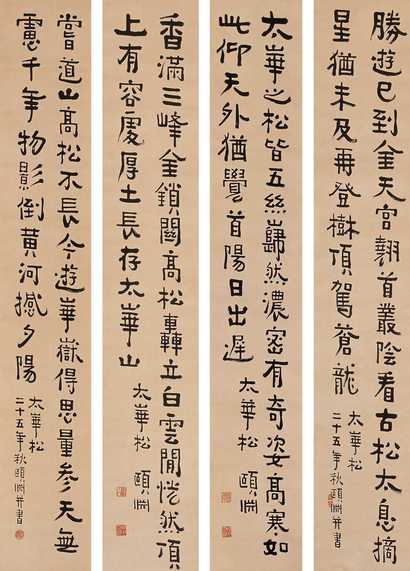 勝遊已到金天宮翹首叢陰看古松太息摘
星猶未及再登樹頂駕蒼龍
太華松
二十五年秋頤淵并書
太華之松皆五絲巋然濃密有奇姿高寒如
此仰天外猶覺首陽日出遲
太華松
頤淵
香滿三峰金鎖關高松轟立白雲閒恍然頂
上有容處厚土長存太華山
太華松
頤淵
嘗道山高松不長今遊華嶽得思量參天無
慮千年物影倒黃河撼夕陽
太華松
二十五年秋頤淵并書